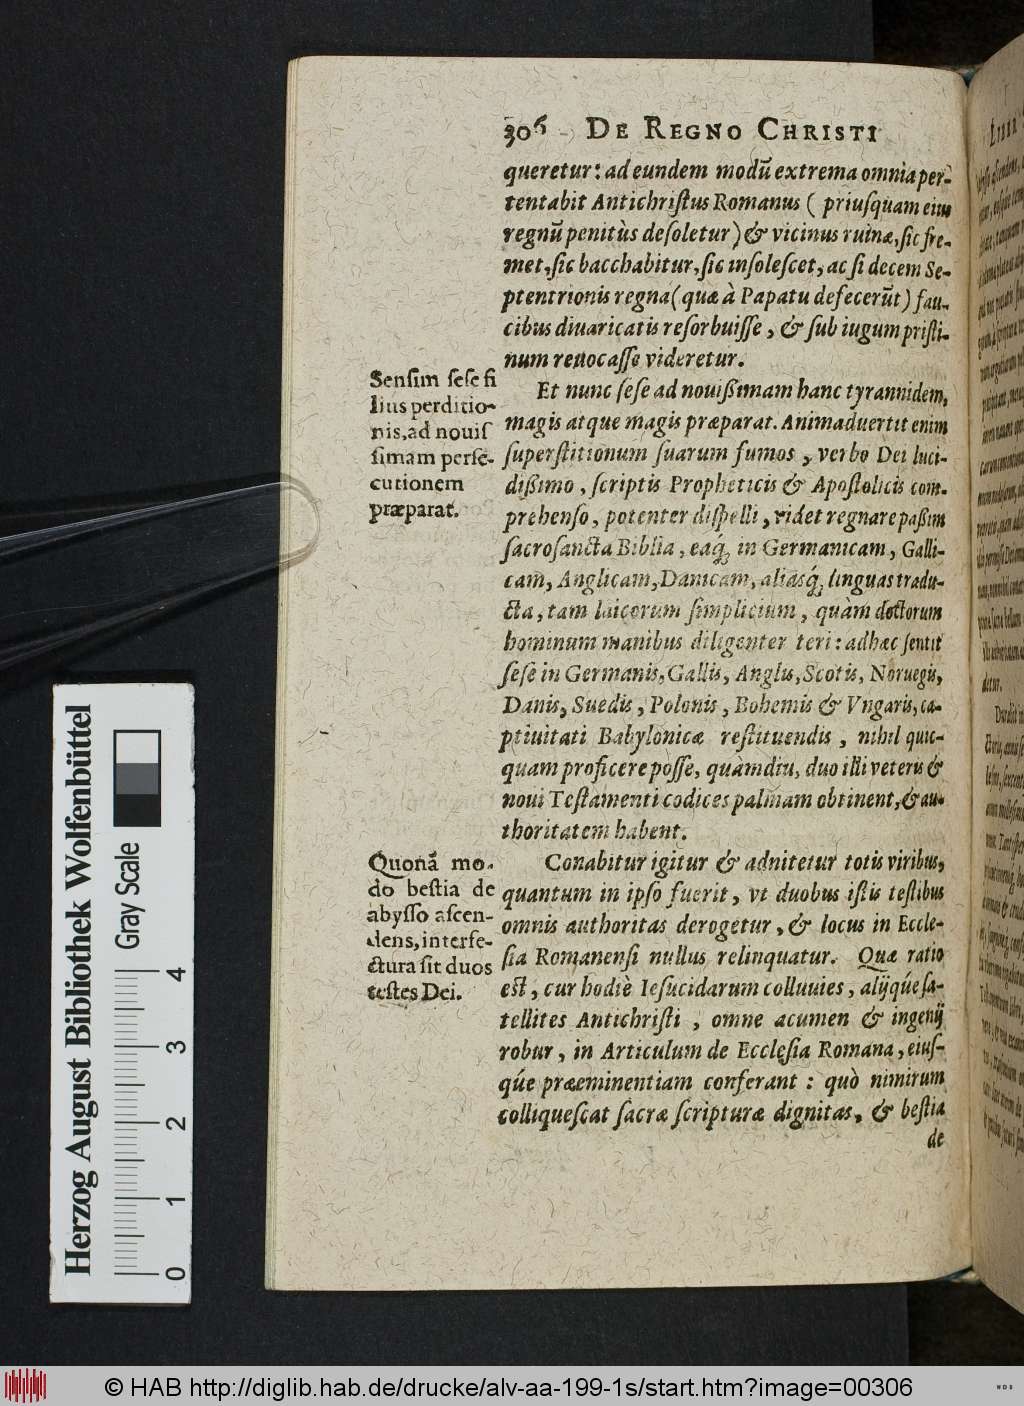 306 DE REGNO CHRISTI
queretur: ad eundem modũ extrema omnia per-
tentabit Antichriſtus Romanus ( priuſquam eius
regnũ penitùs deſoletur) & vicinus ruinæ, ſic fre-
met, ſic bacchabitur, ſic inſoleſcet, ac ſi decem Se-
ptentrionis regna (quæ à Papatu defecerũt) fau-
cibus diuaricatis reſorbuiſſe, & ſub iugum priſti-
num reuocaſſe videretur.
Senſim ſeſe fi
lius perditio-
nis, ad nouiſ
ſimam perſe-
cutionem
præparat.
Et nunc ſeſe ad nouißimam hanc tyrannidem,
magis atque magis præparat. Animaduertit enim
ſuperſtitionum ſuarum fumos, verbo Dei luci-
dißimo, ſcriptis Propheticis & Apoſtolicis com-
prehenſo, potenter diſpelli, videt regnare paßim
ſacroſancta Biblia, eaq́; in Germanicam, Galli-
cam, Anglicam, Danicam, aliasq́; linguas tradu-
cta, tam laicorum ſimplicium, quàm doctorum
hominum manibus diligenter teri: adhæc ſentit
ſeſe in Germanis, Gallis, Anglis, Scotis, Noruegis,
Danis, Suedis, Polonis, Bohemis & Vngaris, ca-
ptiuitati Babylonicæ reſtituendis, nihil quic-
quam proficere poſſe, quàmdiu, duo illi veteris &
noui Teſtamenti codices palmam obtinent, & au-
thoritatem habent.
Quonã mo-
do beſtia de
abyſſo aſcen-
dens, interfe-
ctura ſit duos
teſtes Dei.
Conabitur igitur & adnitetur totis viribus,
quantum in ipſo fuerit, vt duobus iſtis teſtibus
omnis authoritas derogetur, & locus in Eccle-
ſia Romanenſi nullus relinquatur. Quæ ratio
eſt, cur hodiè Ieſucidarum colluuies, alijq́ue ſa-
tellites Antichriſti, omne acumen & ingenij
robur, in Articulum de Eccleſia Romana, eiuſ-
q́ue præeminentiam conferant: quò nimirum
colliqueſcat ſacræ ſcripturæ dignitas, & beſtia
de
Herzog August Bibliothek Wolfenbüttel
Gray Scale
0 1 2 3 4
© HAB http://diglib.hab.de/drucke/alv-aa-199-1s/start.htm?image=00306